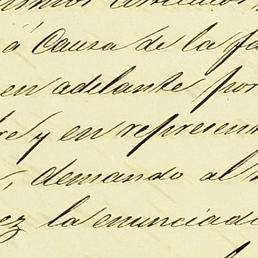 á causa de la fa
en adelante por
re y en represent
, demando al
ez la enunciada